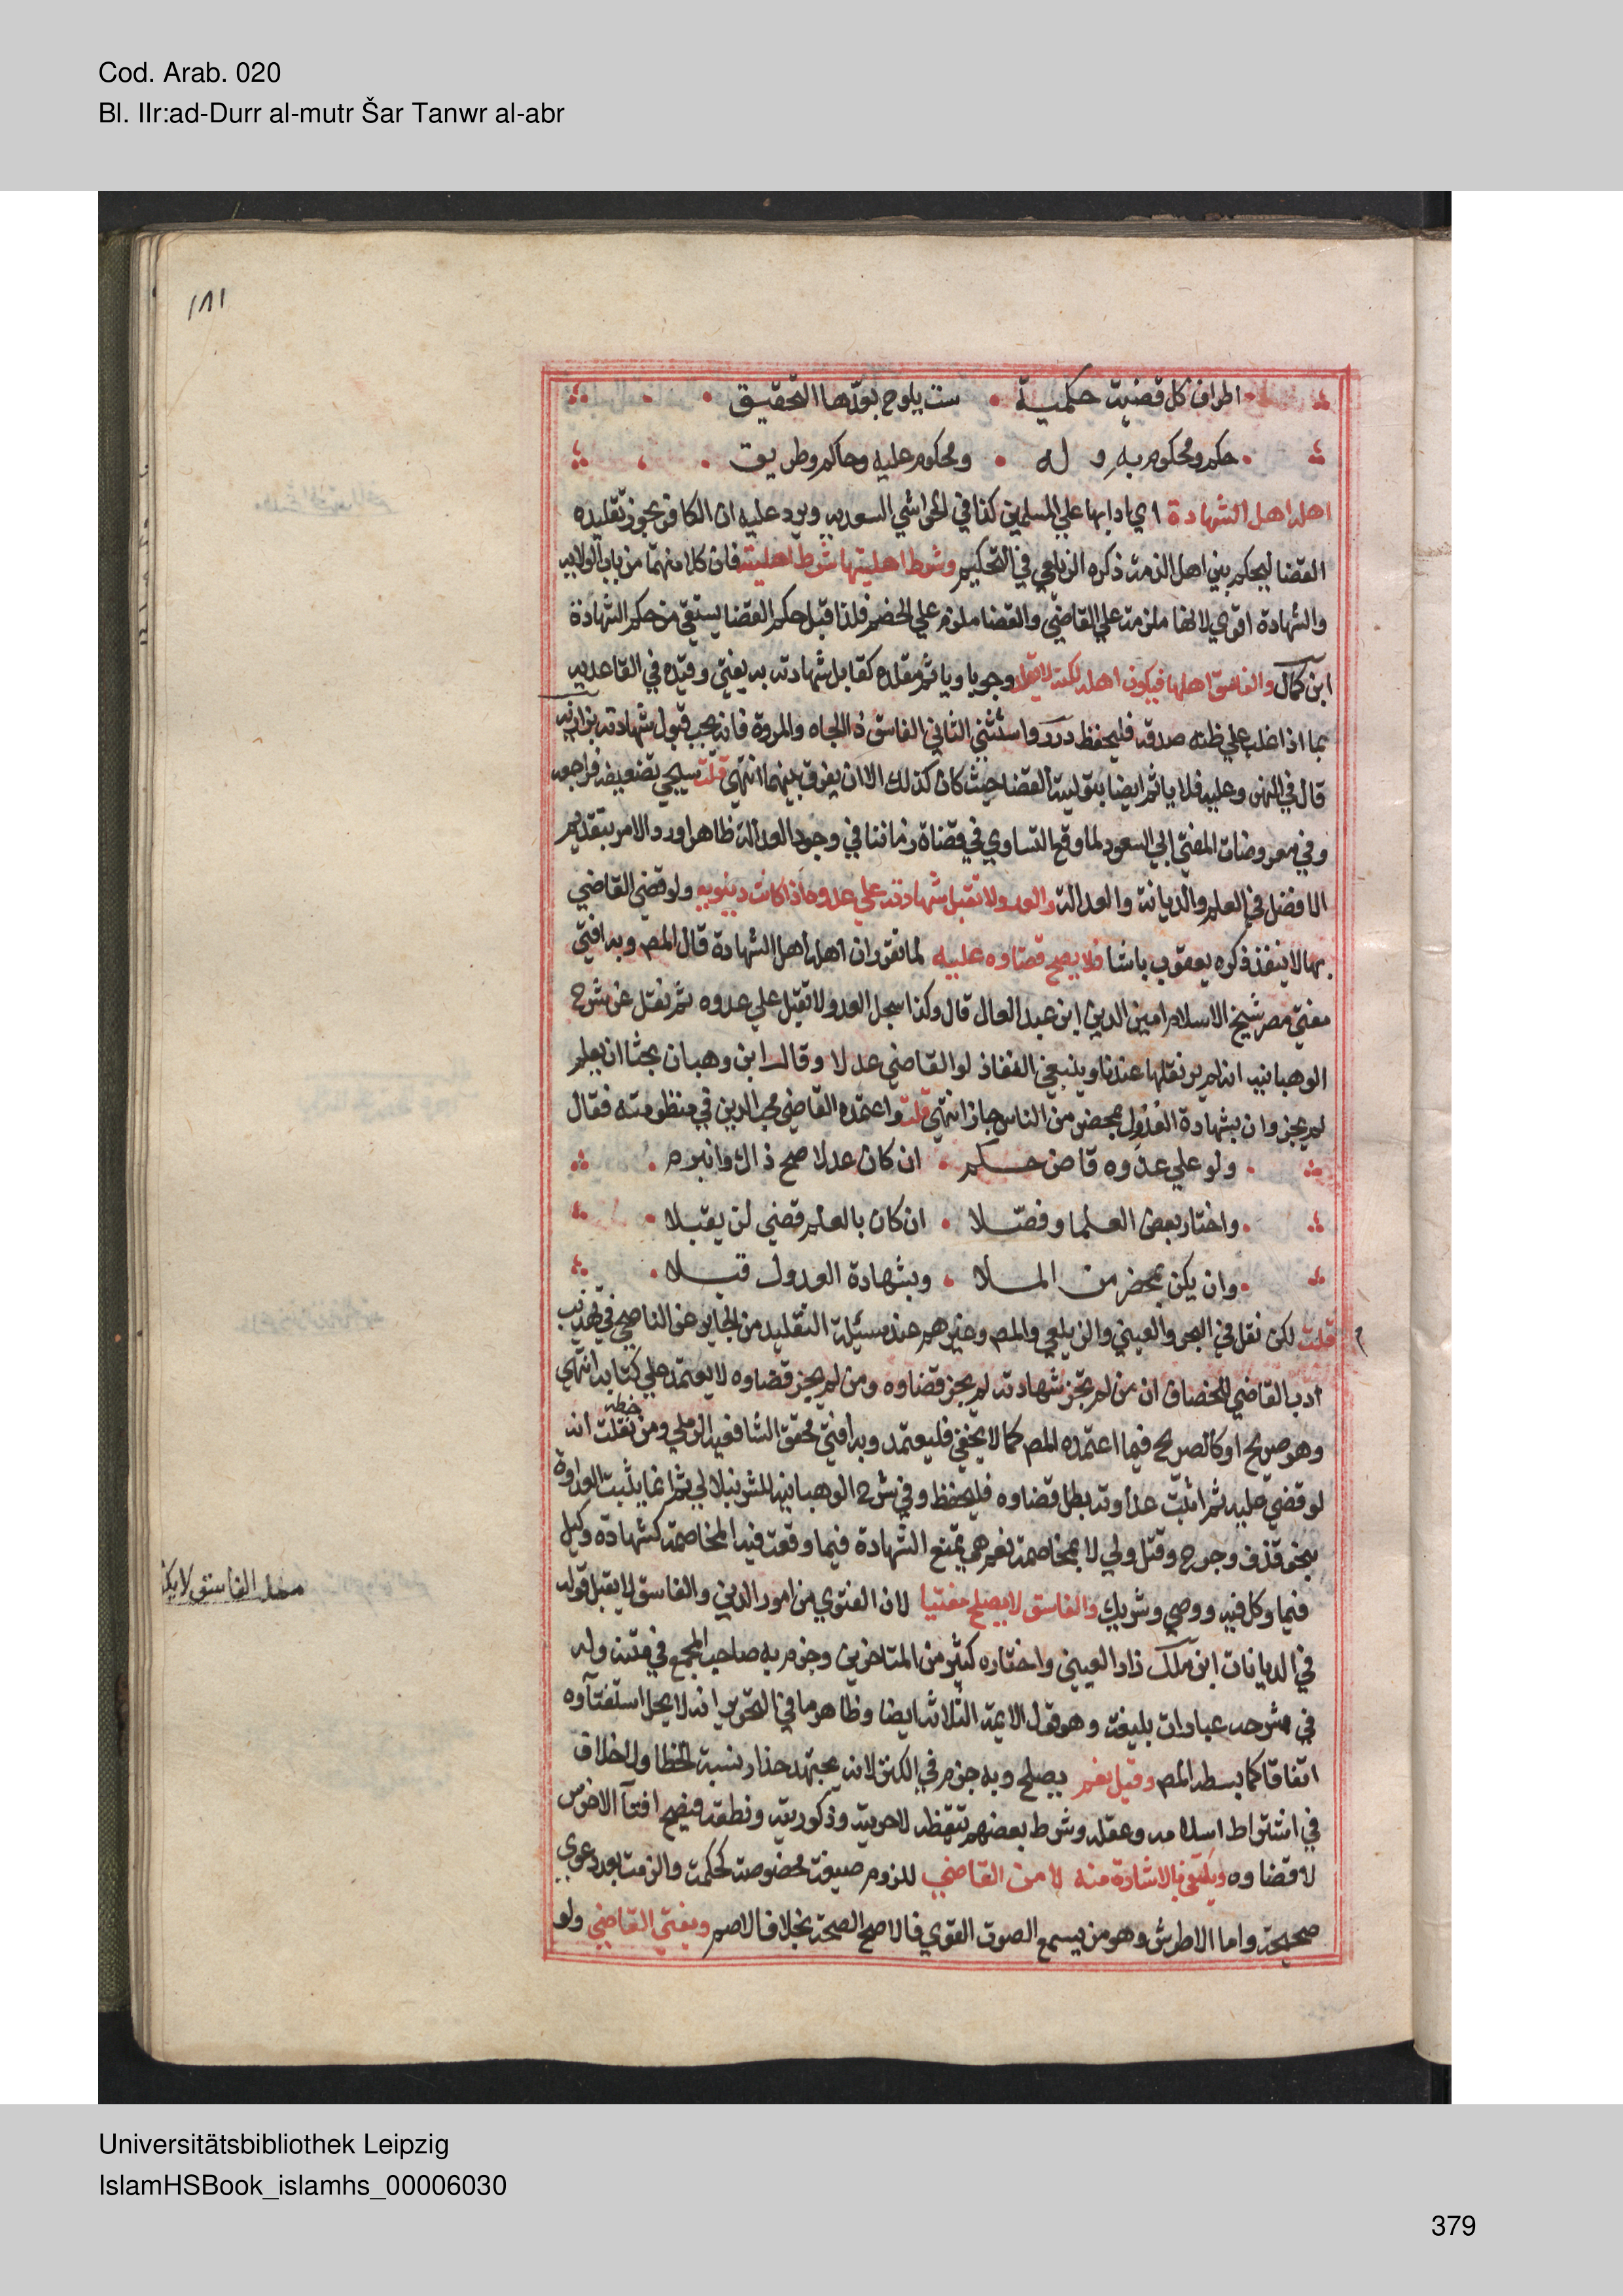 Cod. Arab. 020
Bl. IIr:ad-Durr al-mutr Šar Tanwr al-abr
١٨١
اطراف كل قضية حكمية ست يلوح بعدها التحقيق
حكم ومحكوم به و له ومحكوم عليه وحاكم وطريق
اهله اهل الشهادة اي ادايها علي المسلمين كذا في الحواشي السعدية ويرد عليه ان الكافر يجوز تقليده
القضا ليحكم بين اهل الذمة ذكره الزيلعي في التحكيم وشرط اهليتها شرط اهليته فان كلا منهما من باب الولاية
والشهادة اقوي لانها ملزمة علي القاضي والقضا ملزم علي الخصم فلذا قيل حكم القضا يستقي من حكم الشهادة
ابن كمال والفاسق اهلها فيكون اهله لكنه لا يقلد وجوبا وياثم مقلده كقابل شهادته به يفتي وقيده في القاعدية
بما اذا غلب علي ظنه صدقه فليحفظ درر واستثني الثاني الفاسق ذا الجاه والمروة فانه يجب قبول شهادته بزازية
قال في النهر وعليه فلا ياثم ايضا بتوليته القضا حيث كان كذلك الا ان يفرق بينهما انتهي قلت سيجي تضعيفه فراجعه
وفي معروضات المفتي ابي السعود لما وقع التساوي في قضاة زماننا في وجود العدالة ظاهرا ورد الامر بتقديم
الافضل في العلم والديانة والعدالة والعدو لا تقبل شهادته علي عدوه اذا كانت دنيوية ولو قضي القاضي
بها لا ينفذ ذكره يعقوب باشا فلا يصح قضاوه عليه لما تقرر ان اهله اهل الشهادة قال المص وبه افتي
مفتي مصر شيخ الاسلام امين الدين ابن عبد العال قال وكذا سجل العدو لا يقبل علي عدوه ثم نقل عن شرح
الوهبانية انه لم ير نقلها عندنا وينبغي النفاذ لو القاضي عدلا وقال ابن وهبان بحثا ان بعلم
لم يجز وان بشهادة العدول بمحضر من الناس جاز انتهي قلت واعتمده القاضي محب الدين في منظومته فقال
ولو علي عدوه قاض حكم ان كان عدلا صح ذاك وانبرم
واختار بعض العلما وفصّلا ان كان بالعلم قضي لن يقبلا
وان يكن بمحضر من الملا وبشهادة العدول قبلا
قلت لكن نقل في البحر والعيني والزيلعي والمص وغيرهم عند مسئلة التقليد من الجاير عن الناصحي في تهذيب
ادب القاضي للخصاف ان من لم تجز شهادته لم يجز قضاوه ومن لم يجز قضاوه لا يعتمد علي كتابه انتهي
وهو صريح او كالصريح فيما اعتمده المص كما لا يخفي فليعتمد وبه افتي محقق الشافعية الرملي ومن خطه نقلت انه
لو قضي عليه ثم اثبت عداوته بطل قضاوه فليحفظ وفي شرح الوهبانية للشرنبلالي ثم انما يثبت العداوة
بنحو قذف وجرح وقتل ولي لا بمخاصمة نعم هي تمنع الشهادة فيما وقعت فيه المخاصمة كشهادة وكيل
فيما وكل فيه ووصي وشريك والفاسق لا يصلح مفتيا لان الفتوي من امور الدين والفاسق لا يقبل قوله
في الديانات ابن ملك زاد العيني واختاره كثير من المتاخرين وجزم به صاحب المجمع في متنه وله
في شرحه عبارات بليغة وهو قول الايمة الثلاثة ايضا وظاهر ما في التحرير انه لا يحل استفتآوه
اتفاقا كما بسطه المص وقيل نعم يصلح وبه جزم في الكنز لانه يجتهد حذار نسبة الخطا ولا خلاف
في اشتراط اسلامه وعقله وشرط بعضهم تيقظه لا حريته وذكوريته ونطقه فيصح افتآ الاخرس
لا قضاوه ويكتفي بالاشارة منه لا من القاضي للزوم صيغة مخصوصة كحكمت والزمت بعد دعوي
صحيحة واما الاطرش وهو من يسمع الصوت القوي فالاصح الصحة بخلاف الاصم ويفتي القاضي ولو
الفاسق لا
Universitätsbibliothek Leipzig
IslamHSBook_islamhs_00006030
379